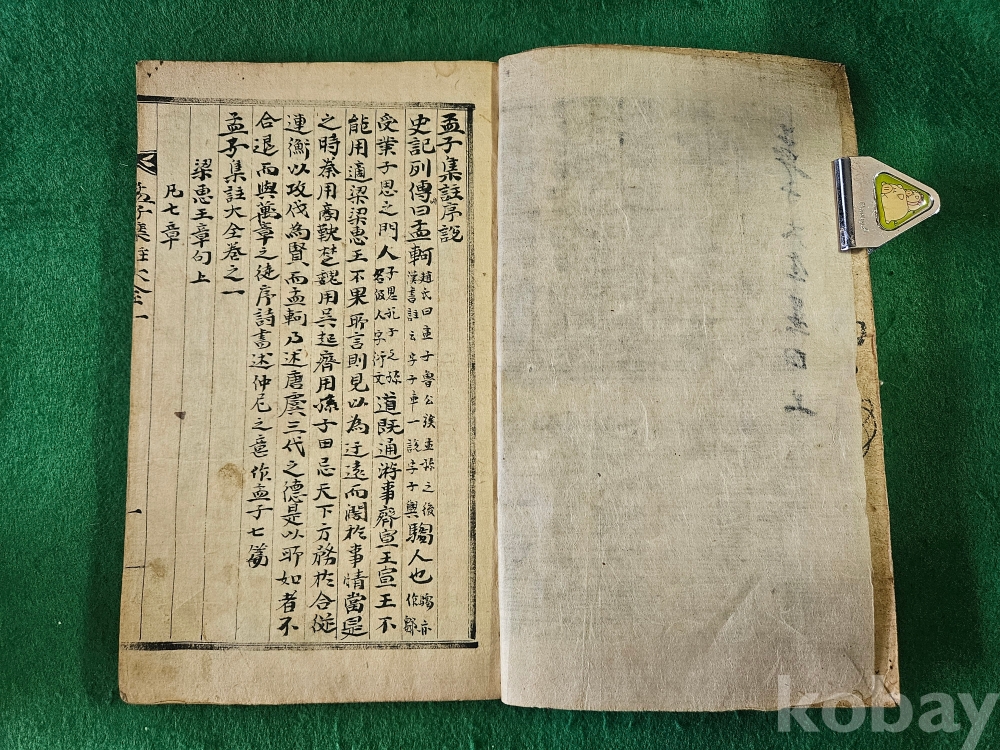 孟子集註序說
史記列傳曰孟軻趙氏曰孟子魯公族孟孫之後漢書註云字子車一說字子輿騶人也騶亦作鄒
受業子思之門人子思孔子之孫名伋人字衍文道既通游事齊宣王宣王不
能用適梁梁惠王不果所言則見以為迂遠而闊於事情當是
之時秦用商鞅楚魏用吳起齊用孫子田忌天下方務於合從
連衡以攻伐為賢而孟軻乃述唐虞三代之德是以所如者不
合退而與萬章之徒序詩書述仲尼之意作孟子七篇
孟子集註大全卷之一
梁惠王章句上
凡七章
孟子集註大全一
一
kobay